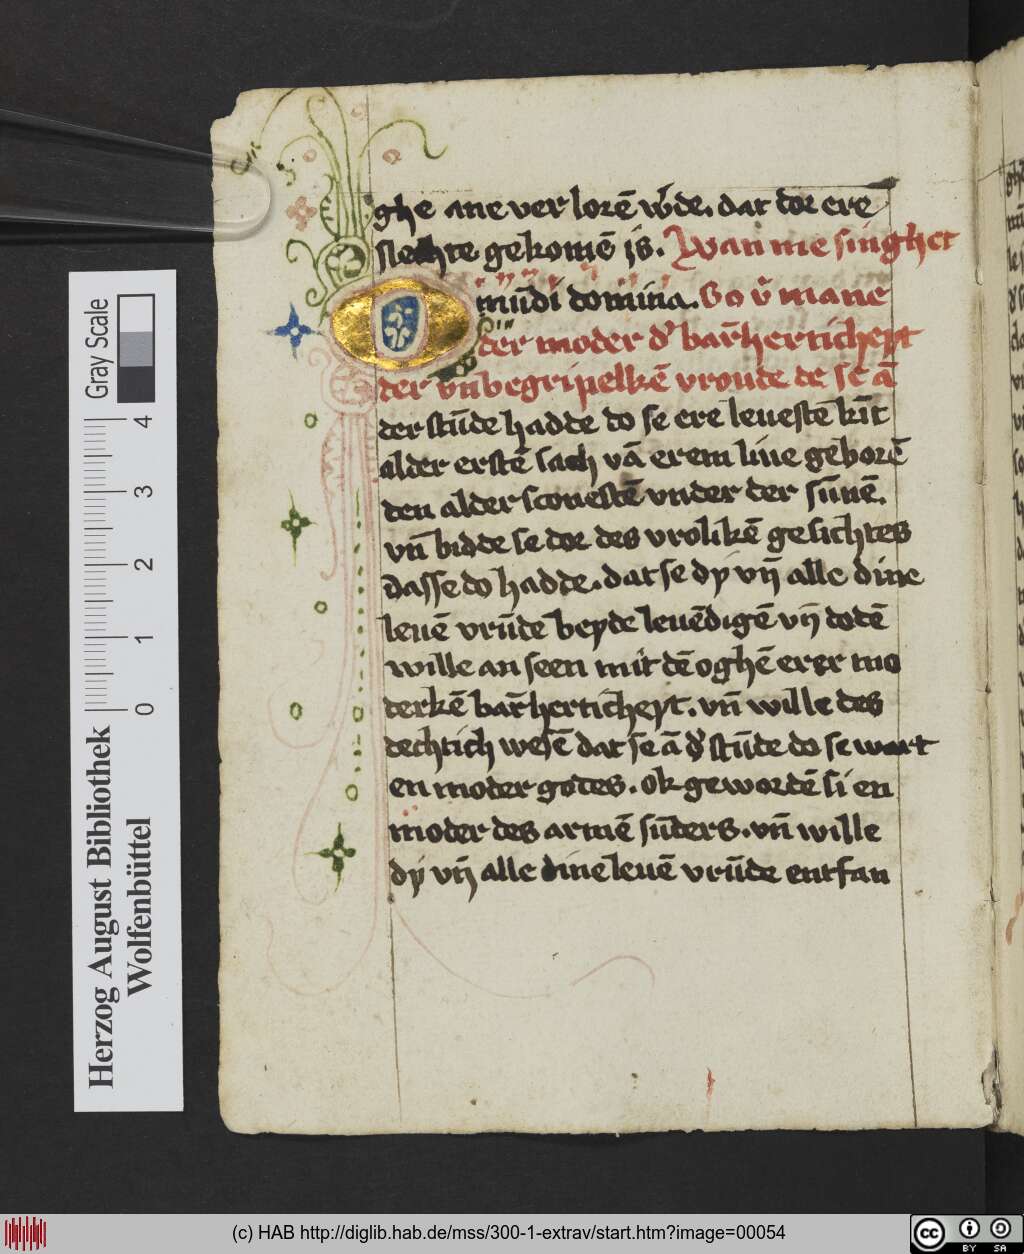 ghe ane verlorē w̄de. dat dor ere
slechte gekomē is. Wan me singhet
O mūdi domina. So v̄ mane
der moder d' bar̄herticheyt
der vn̄begripelkē vroude de se ā
der stūde hadde do se ere leueste kīt
alder erstē sach vā erem liue geborē
den alder sconestē vnder der sūnē.
vn̄ bidde se dor des vrolikē gesichtes
dat se do hadde. dat se dy vn̄ alle dine
leuē vrūde beyde leuēdigē vn̄ dodē
wille an seen mit dē oghē erer mo
derkē bar̄herticheyt. vn̄ wille des
dechtich wesē dat se ā d' stūde do se wart
en moder godes. Ok gewordē si en
moder des armē sūders. vn̄ wille
dy vn̄ alle dine leuē vrūde entfan
Herzog August Bibliothek
Wolfenbüttel
0 1 2 3 4
Gray Scale
(c) HAB http://diglib.hab.de/mss/300-1-extrav/start.htm?image=00054
cc BY SA